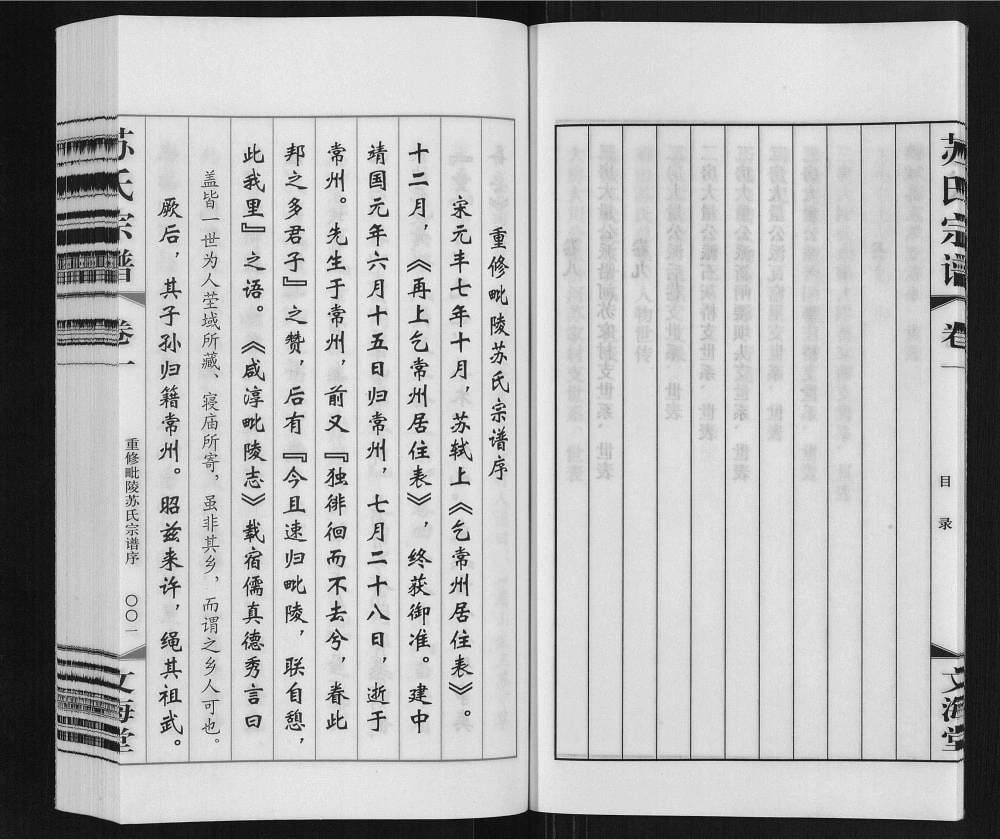 苏氏宗谱
卷一
目录
文海堂
重修毗陵苏氏宗谱序
宋元丰七年十月，苏轼上《乞常州居住表》。
十二月，《再上乞常州居住表》，终获御准。建中
靖国元年六月十五日归常州，七月二十八日，逝于
常州。先生于常州，前又『独徘徊而不去兮，眷此
邦之多君子』之赞，后有『今且速归毗陵，联自憩，
此我里』之语。《咸淳毗陵志》载宿儒真德秀言曰
盖皆一世为人茔域所藏、寝庙所寄，虽非其乡，而谓之乡人可也。
厥后，其子孙归籍常州。昭兹来许，绳其祖武。
苏氏宗谱
卷一
重修毗陵苏氏宗谱序
〇〇一
文海堂